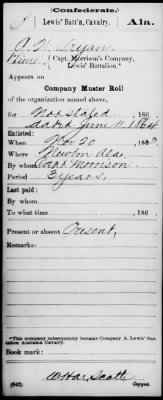 (Confederate.)
Lewis' Batt'n, Cavalry. Ala.
A. W. Bryan
(Capt. Morrison's Company,
Lewis' Battalion.*
Appears on
Company Muster Roll
of the organization named above,
for Not Stated, 186 .
dated June 11, 1864
Enlisted:
When Nov 20, 1863.
Where Newton Ala.
By whom Capt Morrison
Period 3 years.
Last paid:
By whom
To what time , 186 .
Present or absent Present,
Remarks:
*This company subsequently became Company A, Lewis' Battalion Alabama Cavalry.
Book mark:
Scott
(642) Copyist.